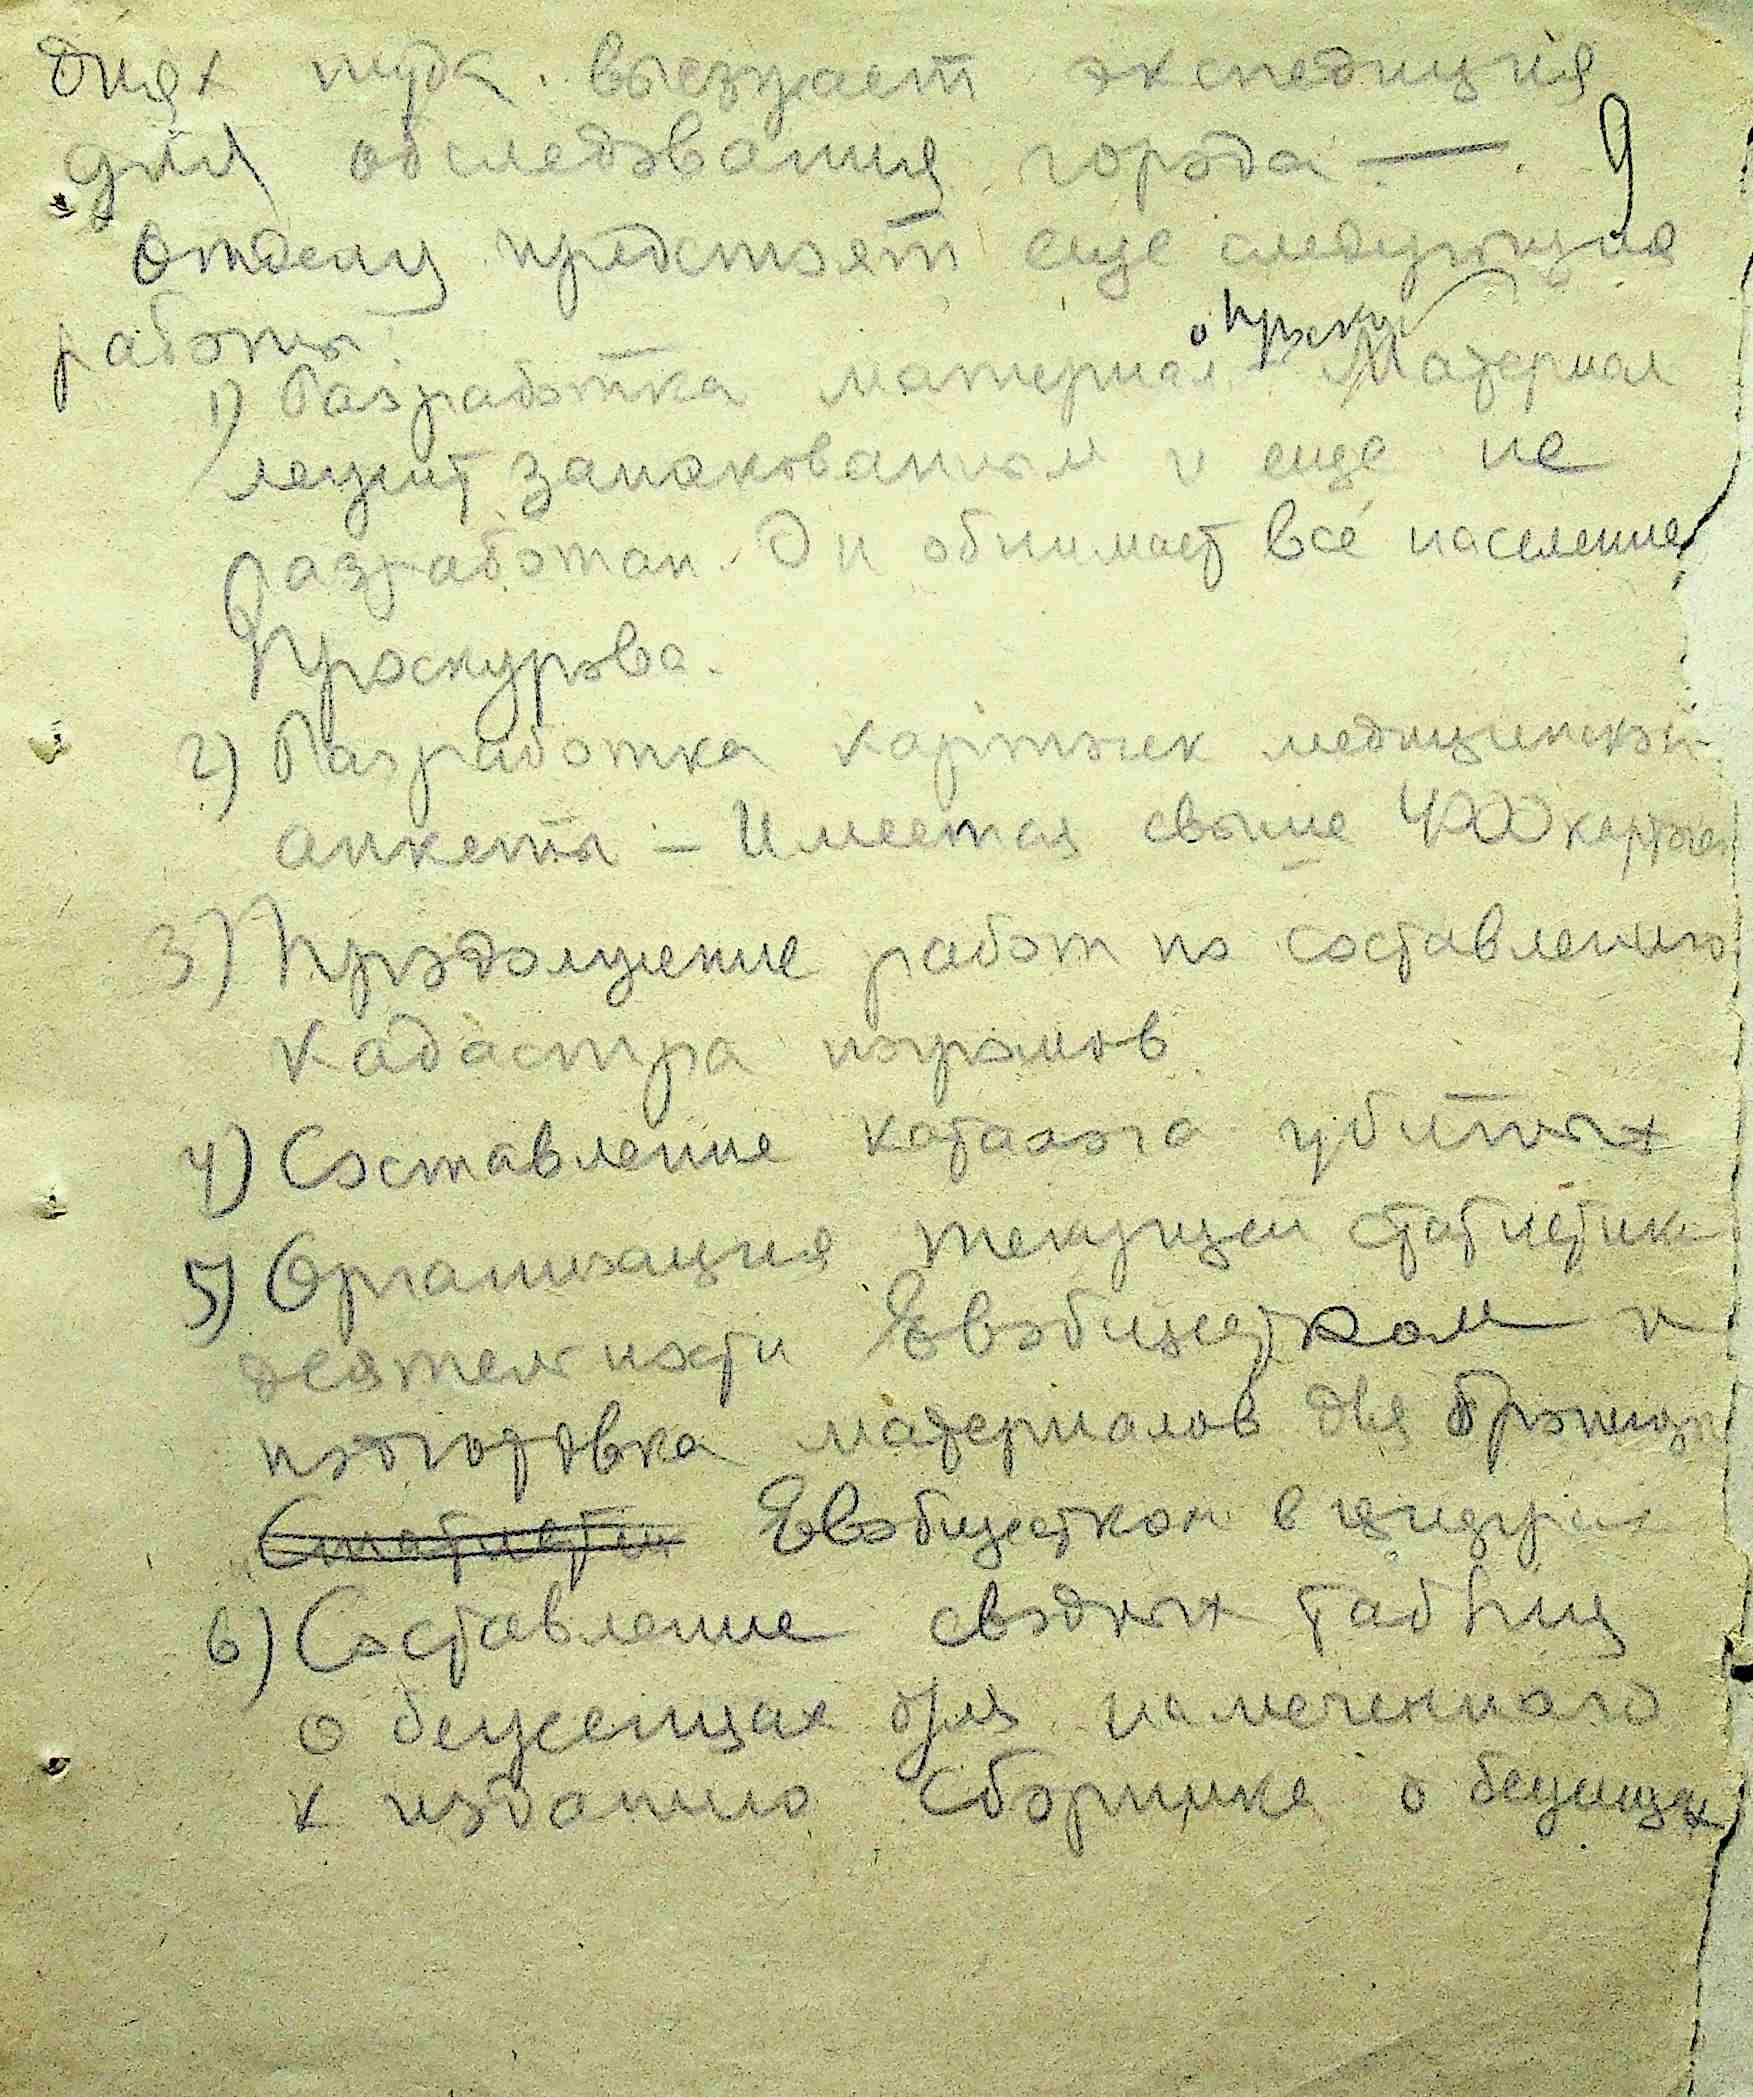 днях туда выезжает экспедиция
для обследования города —. 9
Отделу предстоят еще следующие
работы:
о Проску
1) Разработка материал. Материал
лежит запакованным и еще не
разработан. Он обнимает всё население
Проскурова.
2) Разработка карточек медицинской
анкеты – Имеется свыше 4000 карточек
3) Продолжение работ по составлению
кадастра погромов
4) Составление каталога убитых
5) Организация текущей статистики
деятельности Евобщестком и
подготовка материалов для
Статистик Евобщестком в цифрах
6) Составление сводных таблиц
о беженцах для намеченного
к изданию Сборника о беженцах